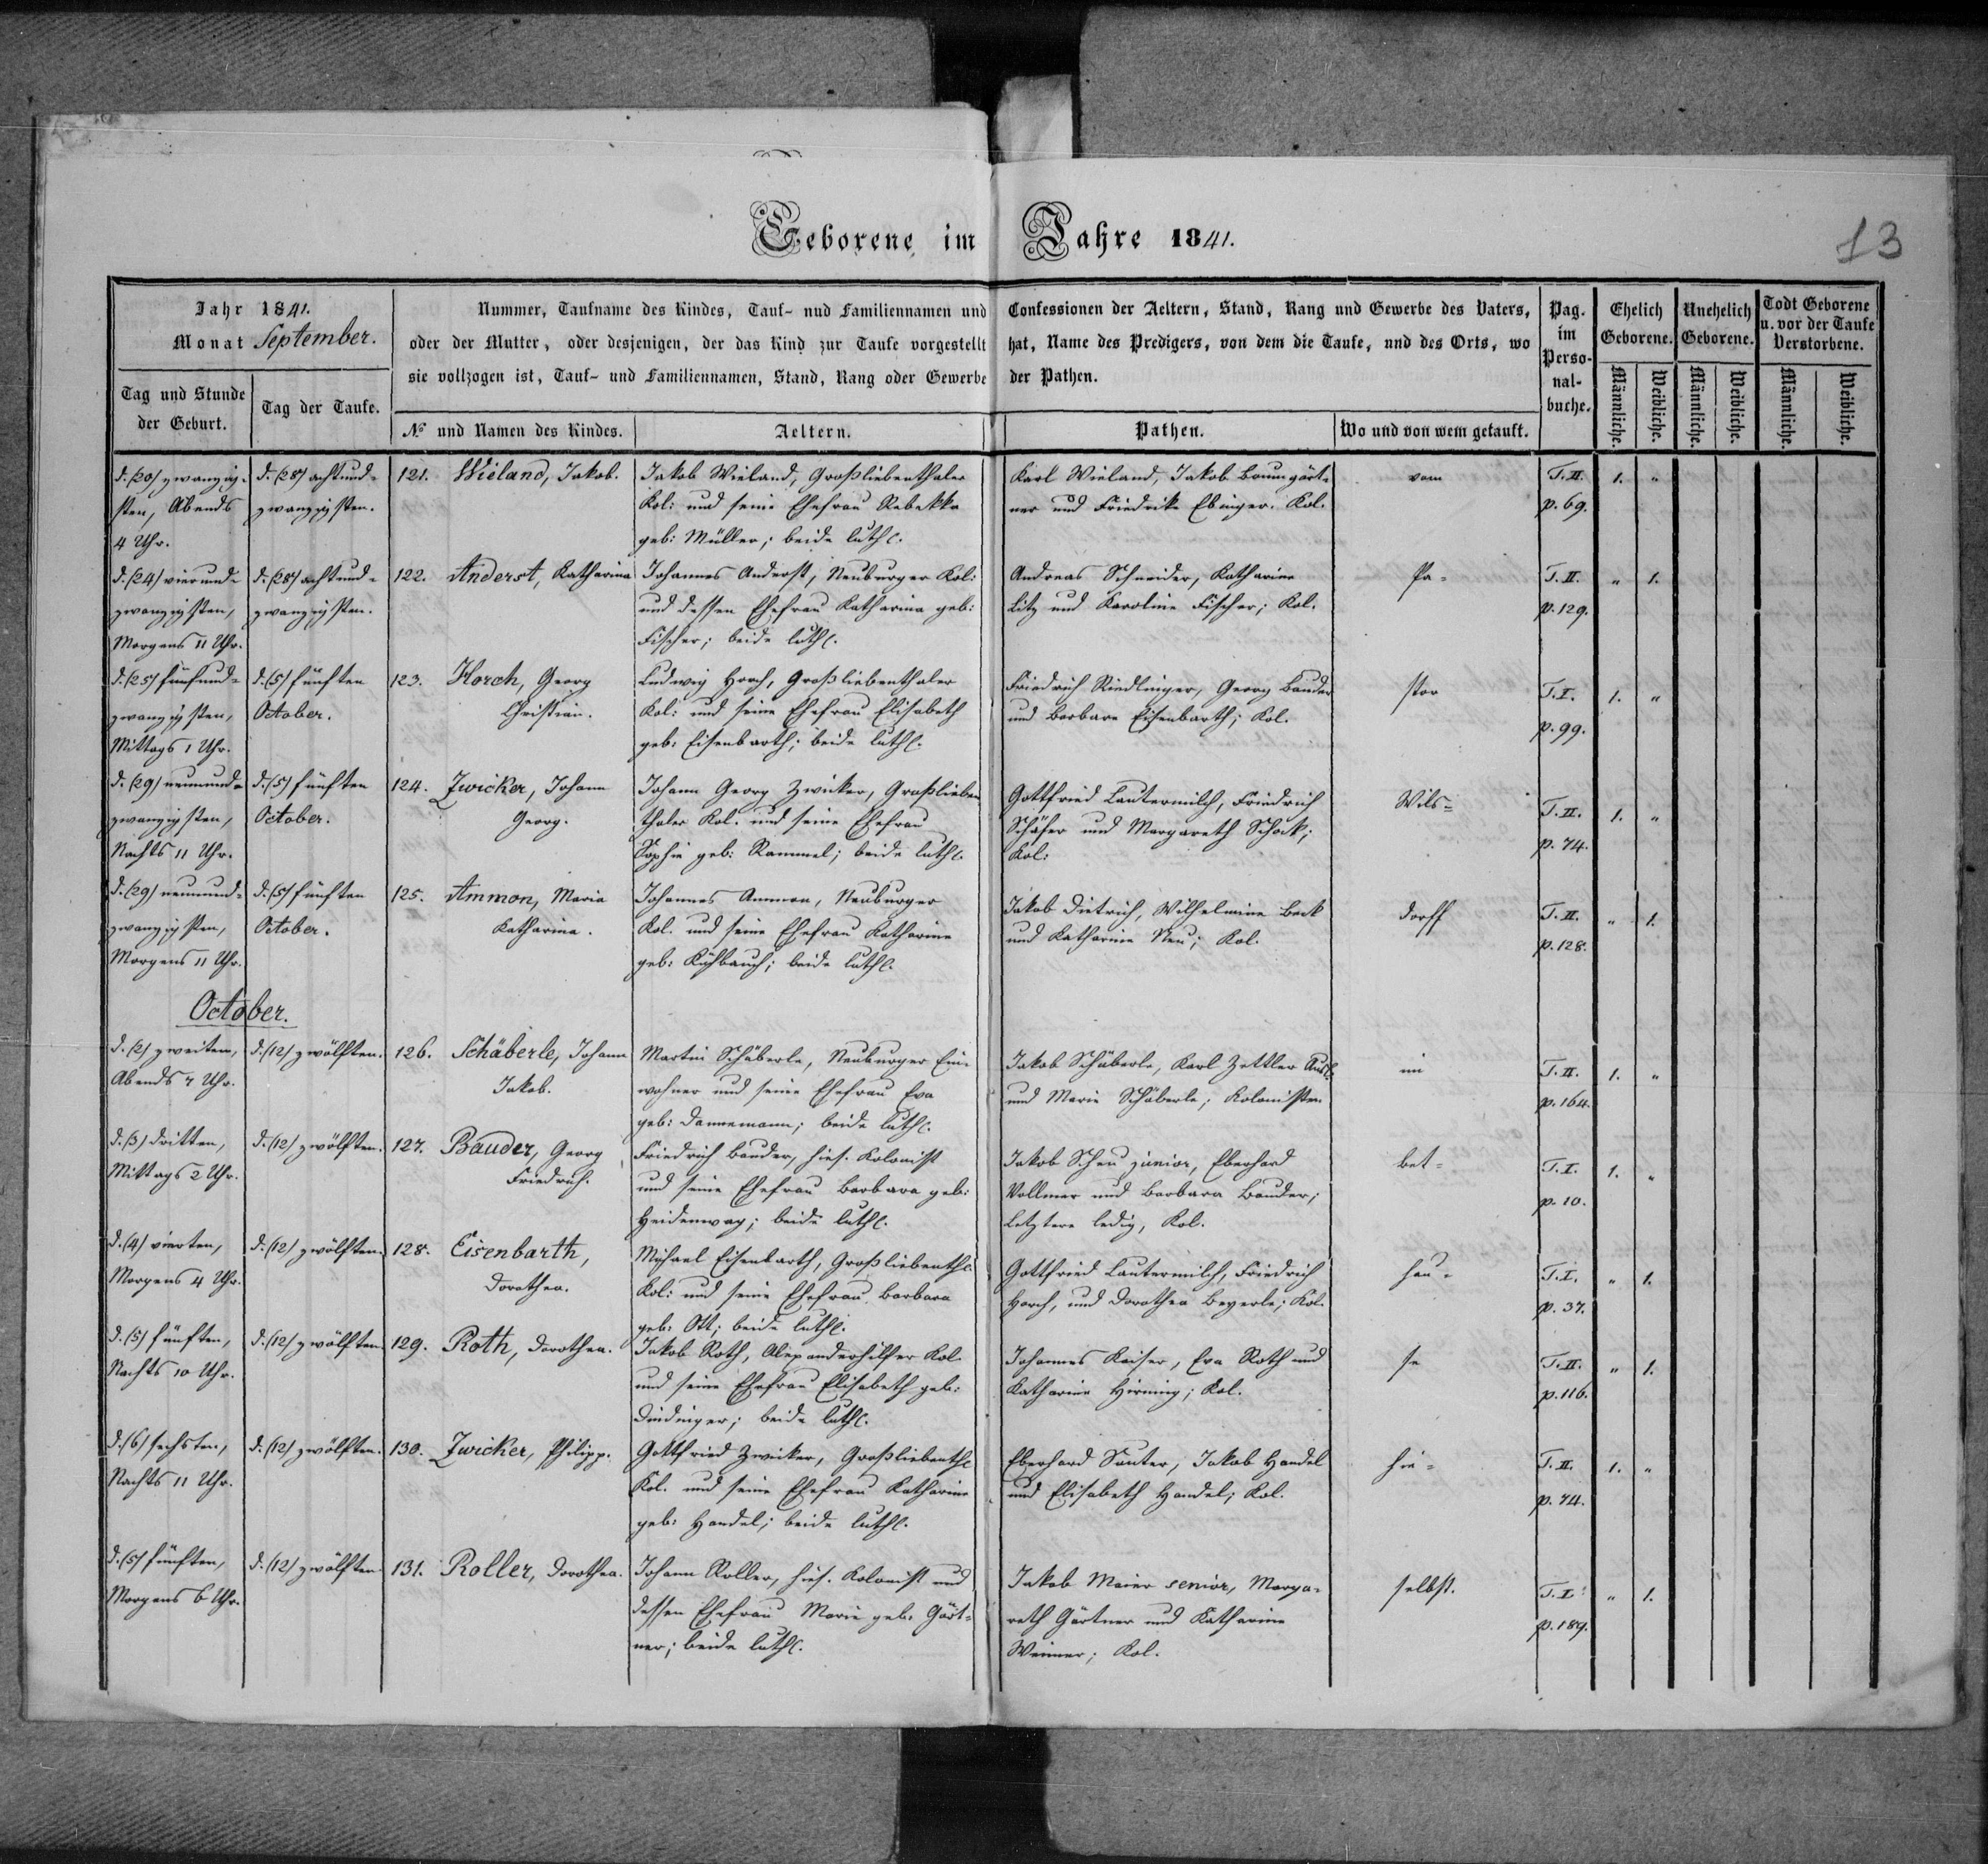 Geborene im Jahre 1841.
13
Jahr 1841.
Monat September.
Tag und Stunde der Geburt.
Tag der Taufe.
Nummer, Taufname des Kindes, Tauf- und Familiennamen und
oder der Mutter, oder desjenigen, der das Kind zur Taufe vorgestellt
sie vollzogen ist, Tauf- und Familiennamen, Stand, Rang oder Gewerbe
№ und Namen des Kindes.
Aeltern.
Confessionen der Aeltern, Stand, Rang und Gewerbe des Vaters,
hat, Name des Predigers, von dem die Taufe, und des Orts, wo
der Pathen.
Pathen.
Wo und von wem getauft.
Pag. im Perso-nal-buche.
Ehelich Geborene.
Unehelich Geborene.
Todt Geborene u. vor der Taufe Verstorbene.
Männliche. Weibliche. Männliche. Weibliche. Männliche. Weibliche.
d. (20) zwanzig-
sten, Abends
4 Uhr.
d. (28) achtund-
zwanzigsten.
121. Wieland, Jakob.
Jakob Wieland, Großliebenthaler
Kol: und seine Ehefrau Rebekka
geb: Müller; beide luth.
Karl Wieland, Jakob Baumgärt-
ner und Friedrike Ebinger. Kol.
vom
T. II. 1. "
p. 69.
d. (24) vierund-
zwanzigsten,
Morgens 11 Uhr.
d. (28) achtund-
zwanzigsten.
122. Anderst, Katharina
Johannes Anderst, Neuburger Kol:
und dessen Ehefrau Katharina geb:
Fischer; beide luth.
Andreas Schneider, Katharine
Litz und Karoline Fischer; Kol.
Pa-
T. II. " 1.
p. 129.
d. (25) fünfund-
zwanzigsten,
Mittags 1 Uhr.
d. (5) fünften
October.
123. Horch, Georg
Christian.
Ludwig Horch, Großliebenthaler
Kol: und seine Ehefrau Elisabeth
geb: Eisenbarth; beide luth.
Friedrich Riedlinger, Georg Bauder
und Barbara Eisenbarth; Kol.
stor
T. I. 1. "
p. 99.
d. (29) neunund-
zwanzigsten,
Nachts 11 Uhr.
d. (5) fünften
October.
124. Zwicker, Johann
Georg.
Johann Georg Zwicker, Großlieben
thaler Kol. und seine Ehefrau
Sophie geb: Rammel; beide luth.
Gottfried Lautermilch, Friedrich
Schäfer und Margareth Schock;
Kol:
Wils-
T. II. 1. "
p. 74.
d. (29) neunund-
zwanzigsten,
Morgens 11 Uhr.
d. (5) fünften
October.
125. Ammon, Maria
Katharina.
Johannes Ammon, Neuburger
Kol. und seine Ehefrau Katharine
geb: Kühbauch; beide luth.
Jakob Dietrich, Wilhelmine Beck
und Katharine Neu; Kol.
dorff
T. II. " 1.
p. 128.
October.
d. (2) zweiten,
Abends 7 Uhr.
d. (12) zwölften.
126. Schäberle, Johann
Jakob.
Martin Schäberle, Neuburger Ein-
wohner und seine Ehefrau Eva
geb: Dannemann; beide luth.
Jakob Schäberle, Karl Zettler
und Marie Schäberle; Kolonisten
im
T. II. 1. "
p. 164.
d. (3) dritten,
Mittags 2 Uhr.
d. (12) zwölften.
127. Bauder, Georg
Friedrich.
Friedrich Bauder, hies. Kolonist
und seine Ehefrau Barbara geb:
Heidenwag; beide luth.
Jakob Scheu junior, Eberhard
Vollmer und Barbara Bauder;
Letztere ledig, Kol.
Bet-
T. I. 1. "
p. 10.
d. (4) vierten,
Morgens 4 Uhr.
d. (12) zwölften.
128. Eisenbarth,
Dorothea.
Michael Eisenbarth, Großliebenth.
Kol: und seine Ehefrau Barbara
geb: Ott; beide luth.
Gottfried Lautermilch, Friedrich
Horch, und Dorothea Beyerle; Kol.
hau-
T. I. " 1.
p. 37.
d. (5) fünften,
Nachts 10 Uhr.
d. (12) zwölften.
129. Roth, Dorothea.
Jakob Roth, Alexanderhilfer Kol.
und seine Ehefrau Elisabeth geb:
Dindinger; beide luth.
Johannes Kaiser, Eva Roth und
Katharine Hirning; Kol.
se
T. II. " 1.
p. 116.
d. (6) sechsten,
Nachts 11 Uhr.
d. (12) zwölften.
130. Zwicker, Philipp.
Gottfried Zwicker, Großliebenth.
Kol. und seine Ehefrau Katharine
geb: Handel; beide luth.
Eberhard Sauter, Jakob Handel
und Elisabeth Handel; Kol.
hie-
T. II. 1. "
p. 74.
d. (5) fünften,
Morgens 6 Uhr.
d. (12) zwölften.
131. Roller, Dorothea.
Johann Roller, hies. Kolonist und
dessen Ehefrau Marie geb: Gärt-
ner; beide luth.
Jakob Maier senior, Marga-
reth Gärtner und Katharine
Weimer; Kol.
selbst.
T. I. " 1.
p. 189.